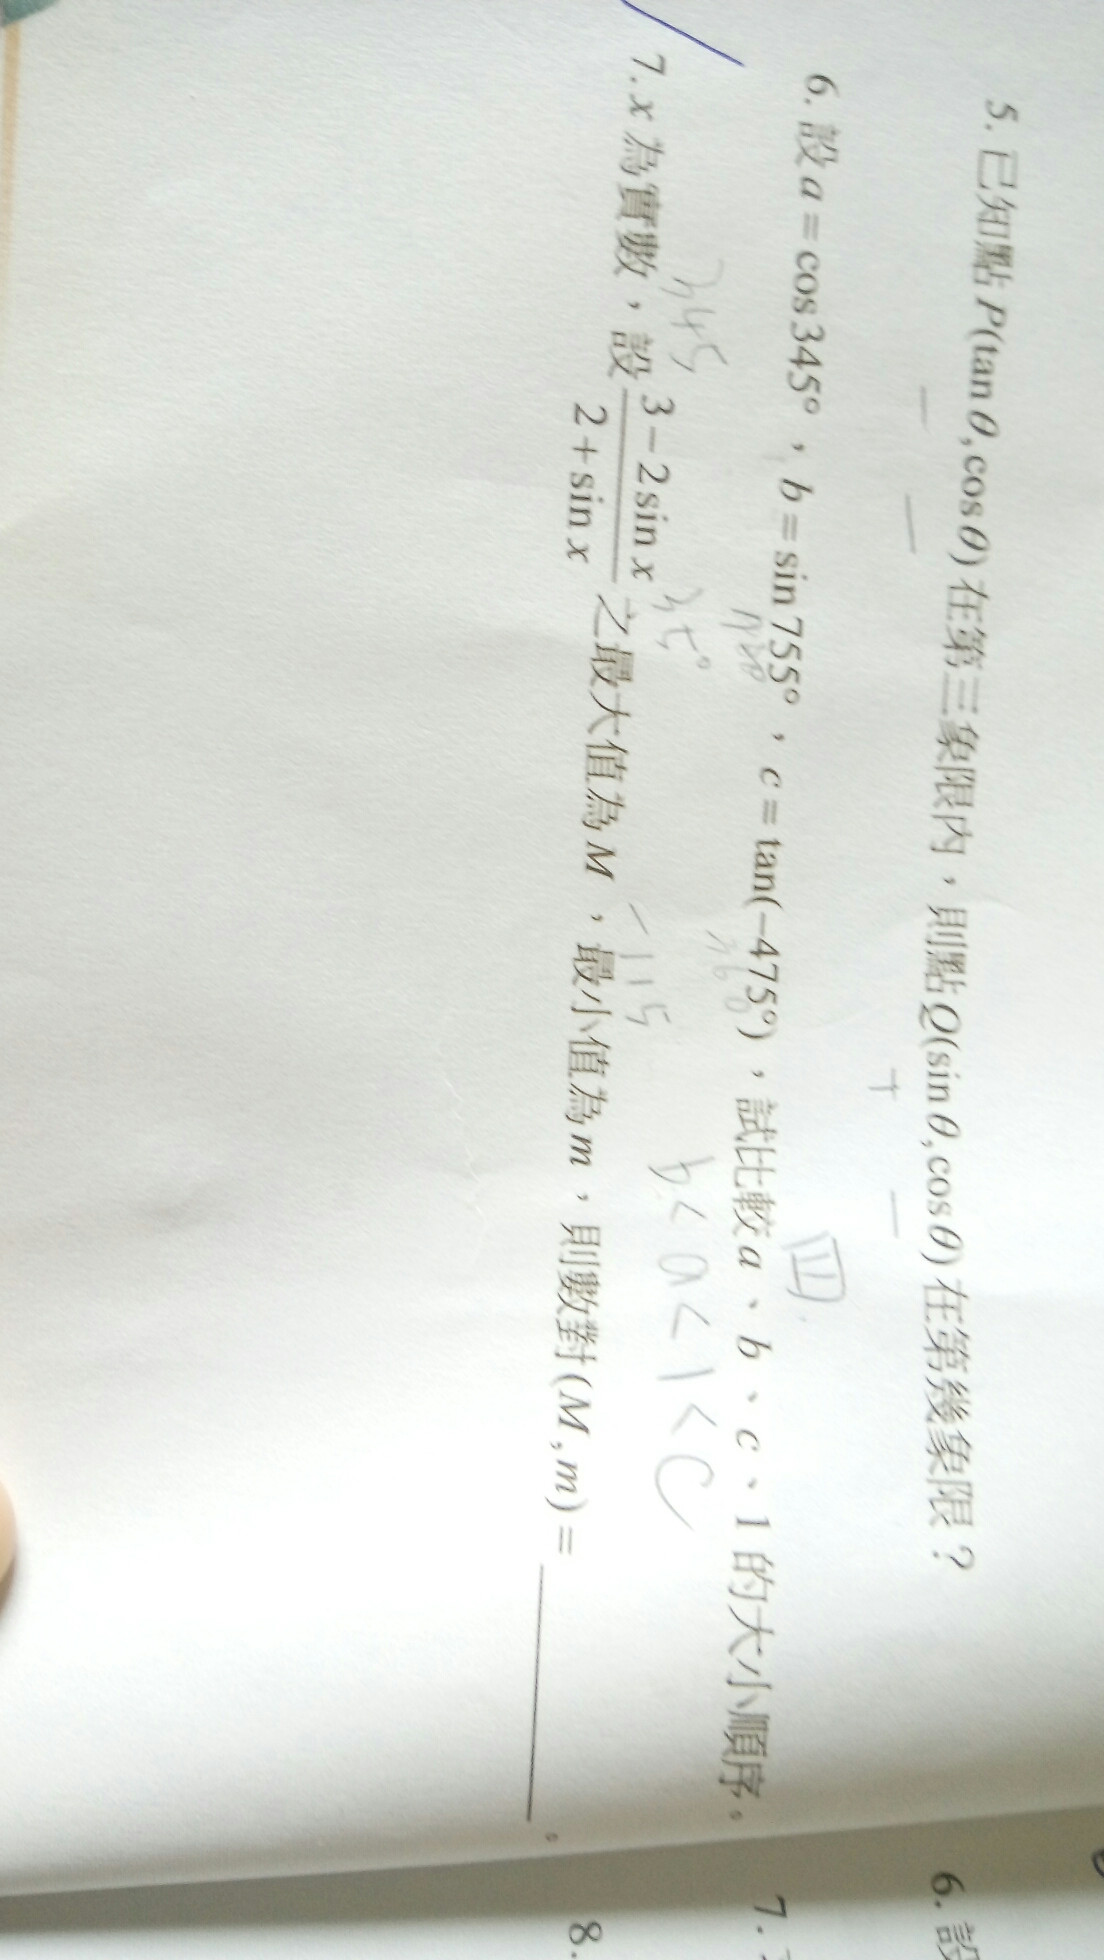 5. 已知點P(tanθ,cosθ)在第三象限內，則點Q(sinθ,cosθ)在第幾象限？
— — + —
四
6. 設a=cos345°，b=sin755°，c=tan(−475°)，試比較a、b、c、1的大小順序。
360
345 35° -115 b<a<1<c
7. x為實數，設 (3−2sin x)/(2+sin x) 之最大值為M，最小值為m，則數對(M,m)=________。
6. 設
7.
8.